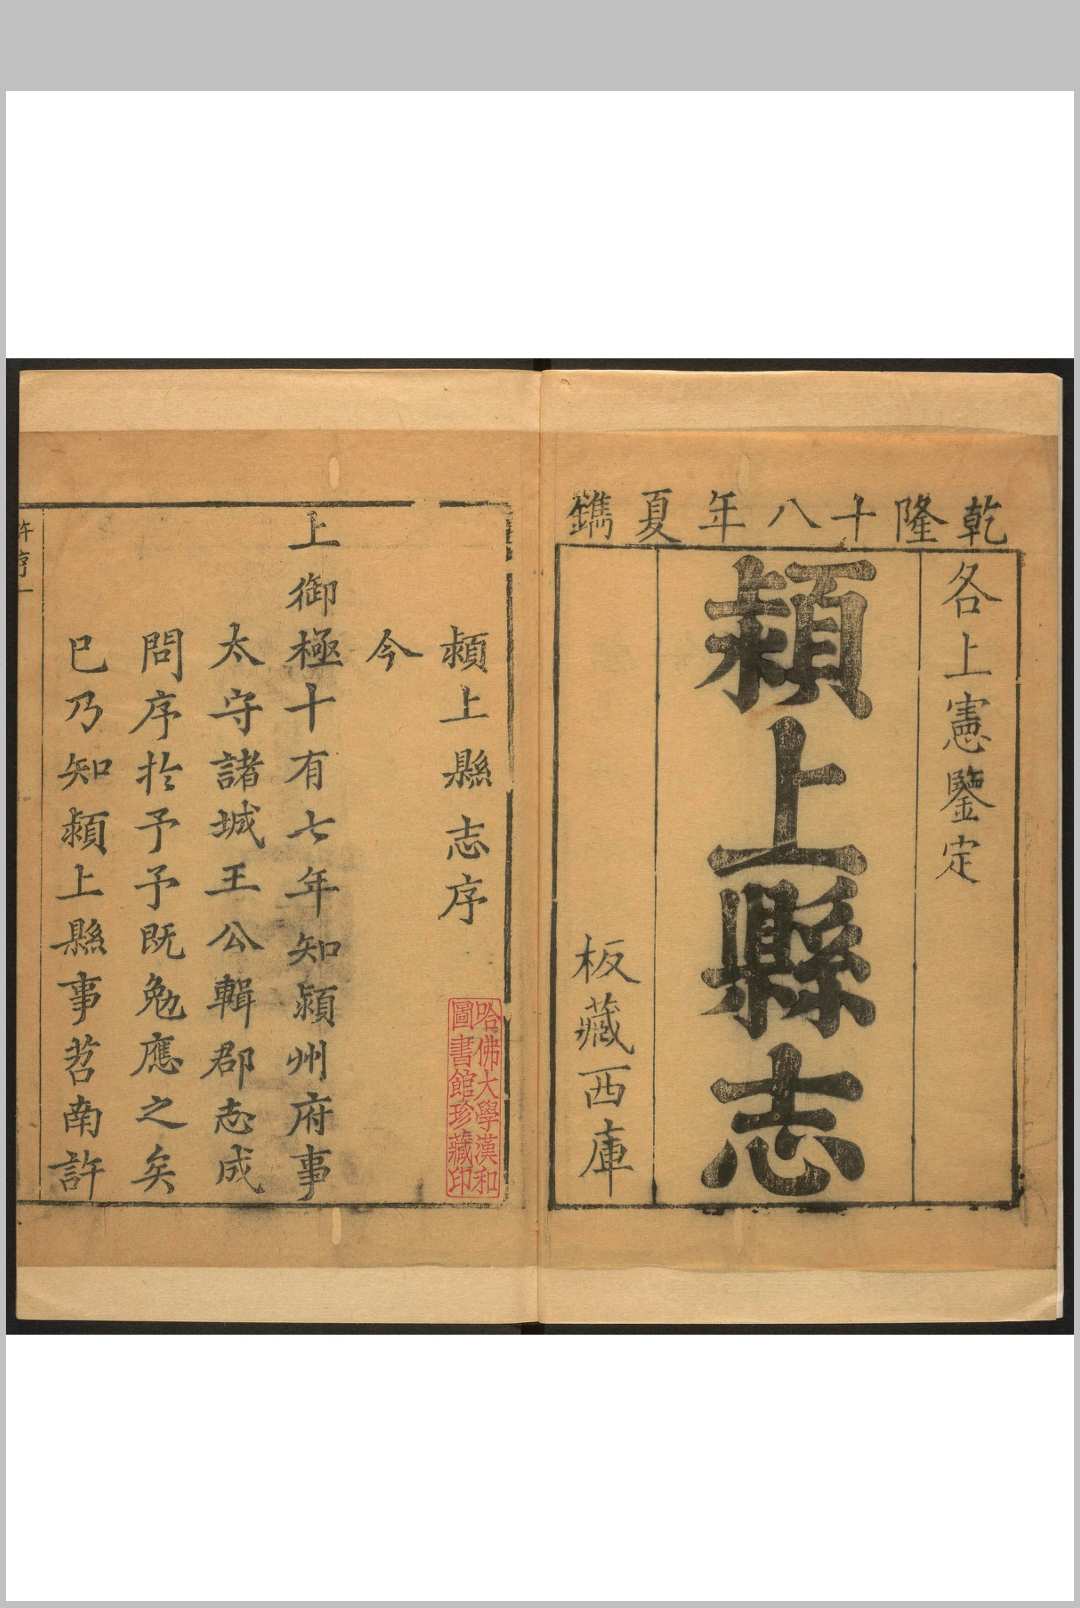 乾隆十八年夏鐫
各上憲鑒定
潁上縣志
板藏西庫
潁上縣志序
今
上御極十有七年知潁州府事
太守諸城王公輯郡志成
問序於予予既勉應之矣
已乃知潁上縣事苕南許
許序一
哈佛大學漢和
圖書館珍藏印